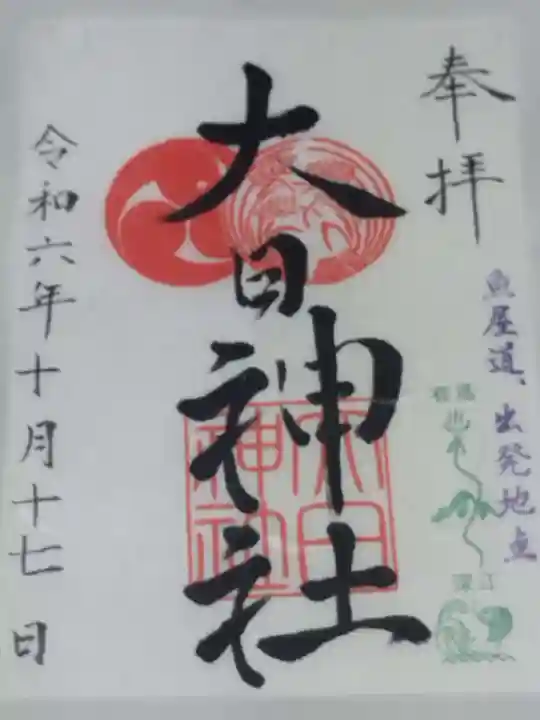 奉拝
魚屋道、出発地点
深江
大日神社
大日神社
令和六年十月十七日